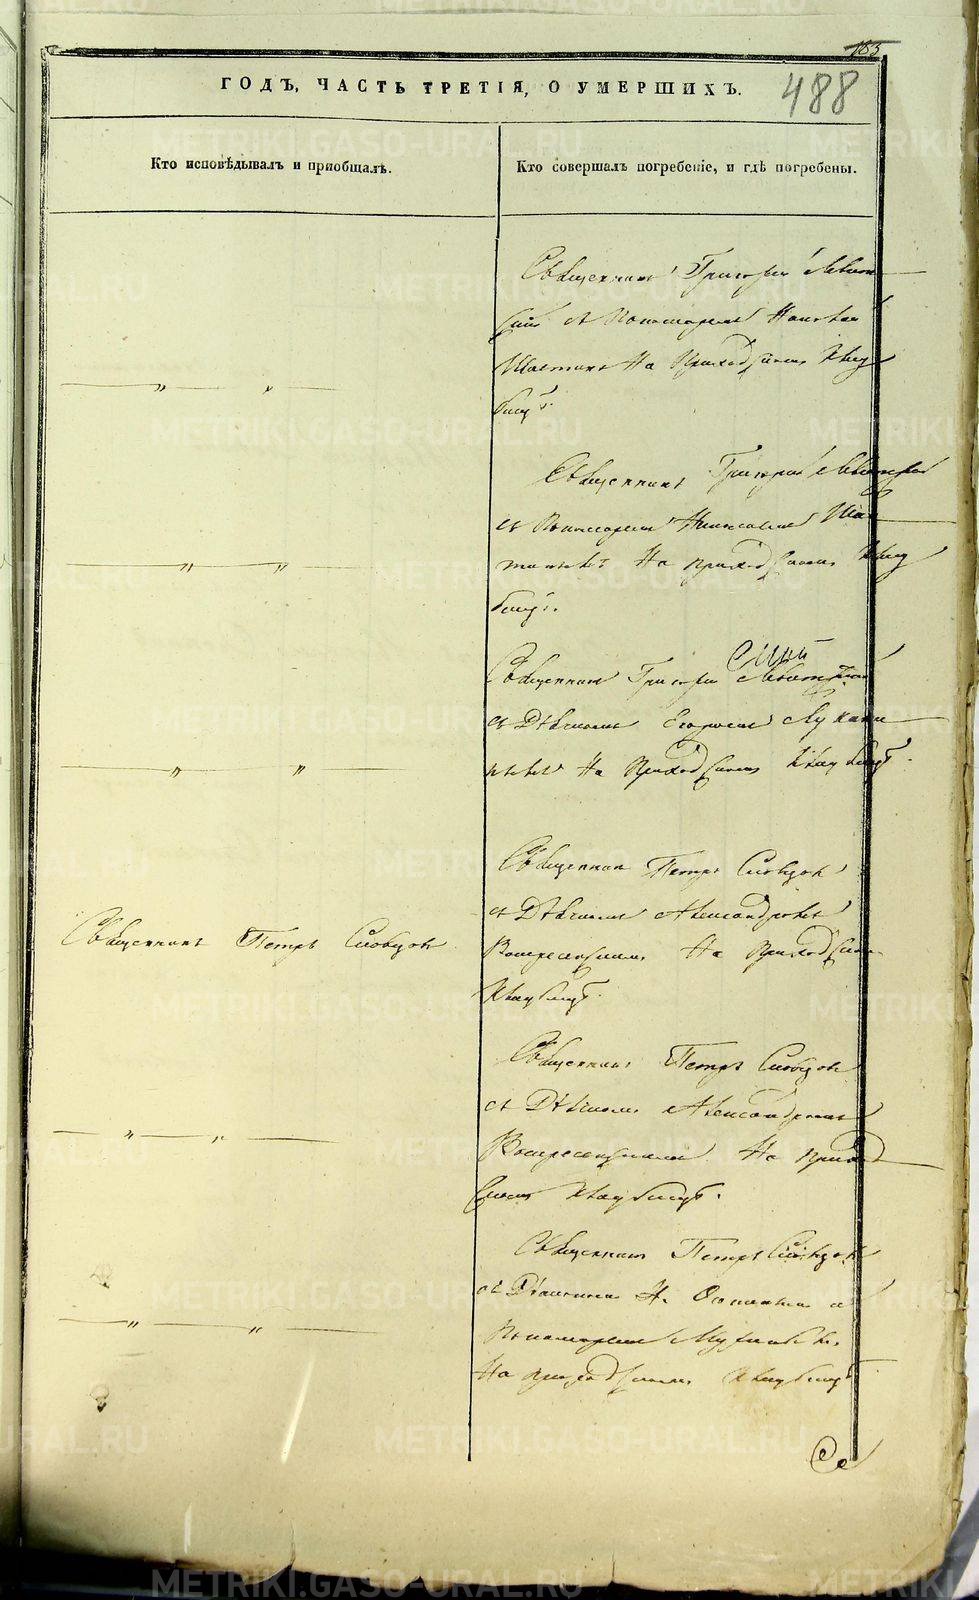 185
488
ГОДЪ, ЧАСТЬ ТРЕТІЯ, О УМЕРШИХЪ.
Кто исповѣдывалъ и пріобщалъ.
Кто совершалъ погребеніе, и гдѣ погребены.
Священникъ Григорій Левит
скій съ Пономаремъ
На Приходскомъ Клад
бищѣ.
Священникъ Григорій Левитскій
съ Пономаремъ
На приходскомъ Клад
бищѣ.
Священникъ Григорій Левитскій
съ Дьячкомъ Егоромъ Лукани
нымъ На Приходскомъ Кладбищѣ.
Священникъ Петръ Словцовъ
Священникъ Петръ Словцовъ
съ Дьячкомъ Александромъ
Воскресенскимъ На Приходскомъ
Кладбищѣ.
Священникъ Петръ Словцовъ
съ Дьячкомъ Александромъ
Воскресенскимъ На приход
скомъ Кладбищѣ.
Священникъ Петръ Словцовъ
съ и
Пономаремъ
На приходскомъ Кладбищѣ
METRIKI.GASO-URAL.RU